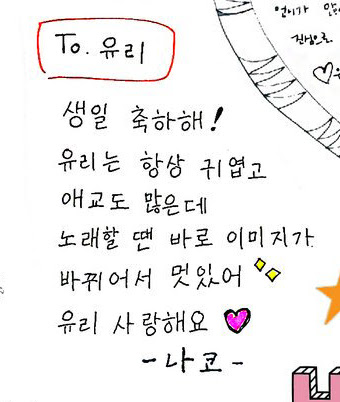 To. 유리
생일 축하해!
유리는 항상 귀엽고
애교도 많은데
노래할 땐 바로 이미지가
바뀌어서 멋있어
유리 사랑해요
- 나코 -
언니가
진심으로